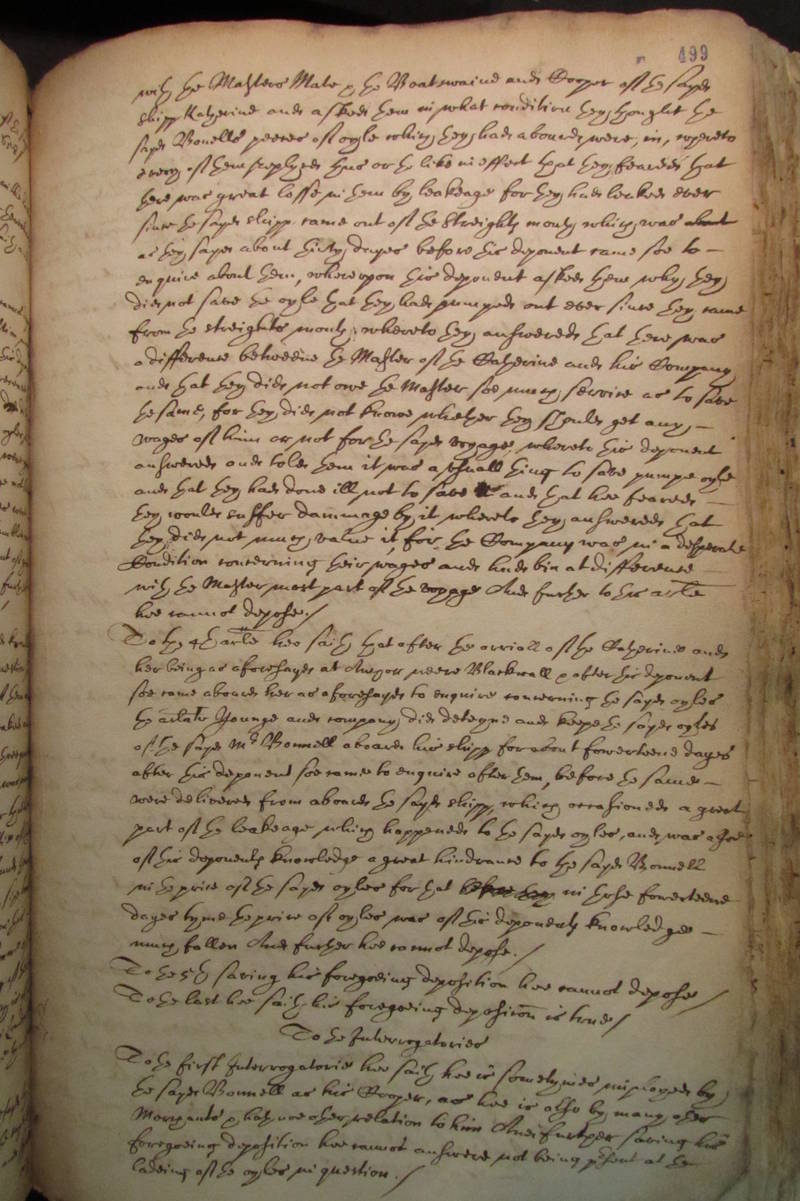 499
with the Masters Mate, the Boatswaine and Cooper of the sayd
shipp Katherine and asked them in what condition they thought the
sayd Bonells peeces of oyle which they had aboard, were, in, whereto
every of them replyed thus or the like in effect that they feared that
there was great losse in them by leakeage for they had leaked ever
since the sayd shipp came out of the Streights mouth, which was about
as they sayd about thirty dayes before this deponent came soe to
enquire about them, whereupon this deponent asked them why they
did not save the oyle that they had pumped out ever since they came
from the streights mouth, whereto they answered that there was
a difference betweene the Master of the Catherine and his Company
and that they did not owe the Master soe much service as to save
the same, for they did not knowe whether they should get any
wages of him or not for the sayd voyage, whereto this deponent
answered and told them it was a small thing to save pumpe oyle
and that they had done ill not to save it and that hee feared
they would suffer dammage by it whereto they answered that
they did not much value it, for the Company was in a desperate
Condition concerning their wages and had bin at difference
with the Master most part of the voyage And further to this arlle
hee cannot depose./
To the 4th arlle hee saith that after the arrivall of the Catherine and
her being as aforesayd at Anchor neere Blackwall, after this deponent
soe came aboard her as aforesayd to enquire concerning the sayd oyles
the arlate Younge and company did deteyne and keepe the sayd oyles
of the sayd Mr Bonnell aboard his shipp for about fowerteene dayes
after this deponent soe came to enquire after them, before the same
were delivered from aboard the sayd shipp, which occasioned a great
part of the leakeage which happened to the sayd oyles, and was alsoe
of this deponents knowledge a great hindrance to the sayd Bonnell
in the price of the sayd oyles for that before they in those fowerteene
dayes tyme the price of oyles was of this deponents knowledge
much fallen And further hee cannot depose./
To the 5th saving his foregoeing deposition hee cannot depose/
To the last hee saith his foregoeing deposition is true/
To the Interrogatories
To the first Interrogatorie hee saith hee is sometymes imployed by
the sayd Bonnell as his Cooper, as hee is also by many other
Marchants, hath noe other relation to him And further saving his
foregoeing deposition hee cannot answere not being present at the
ladeing of the oyles in question./